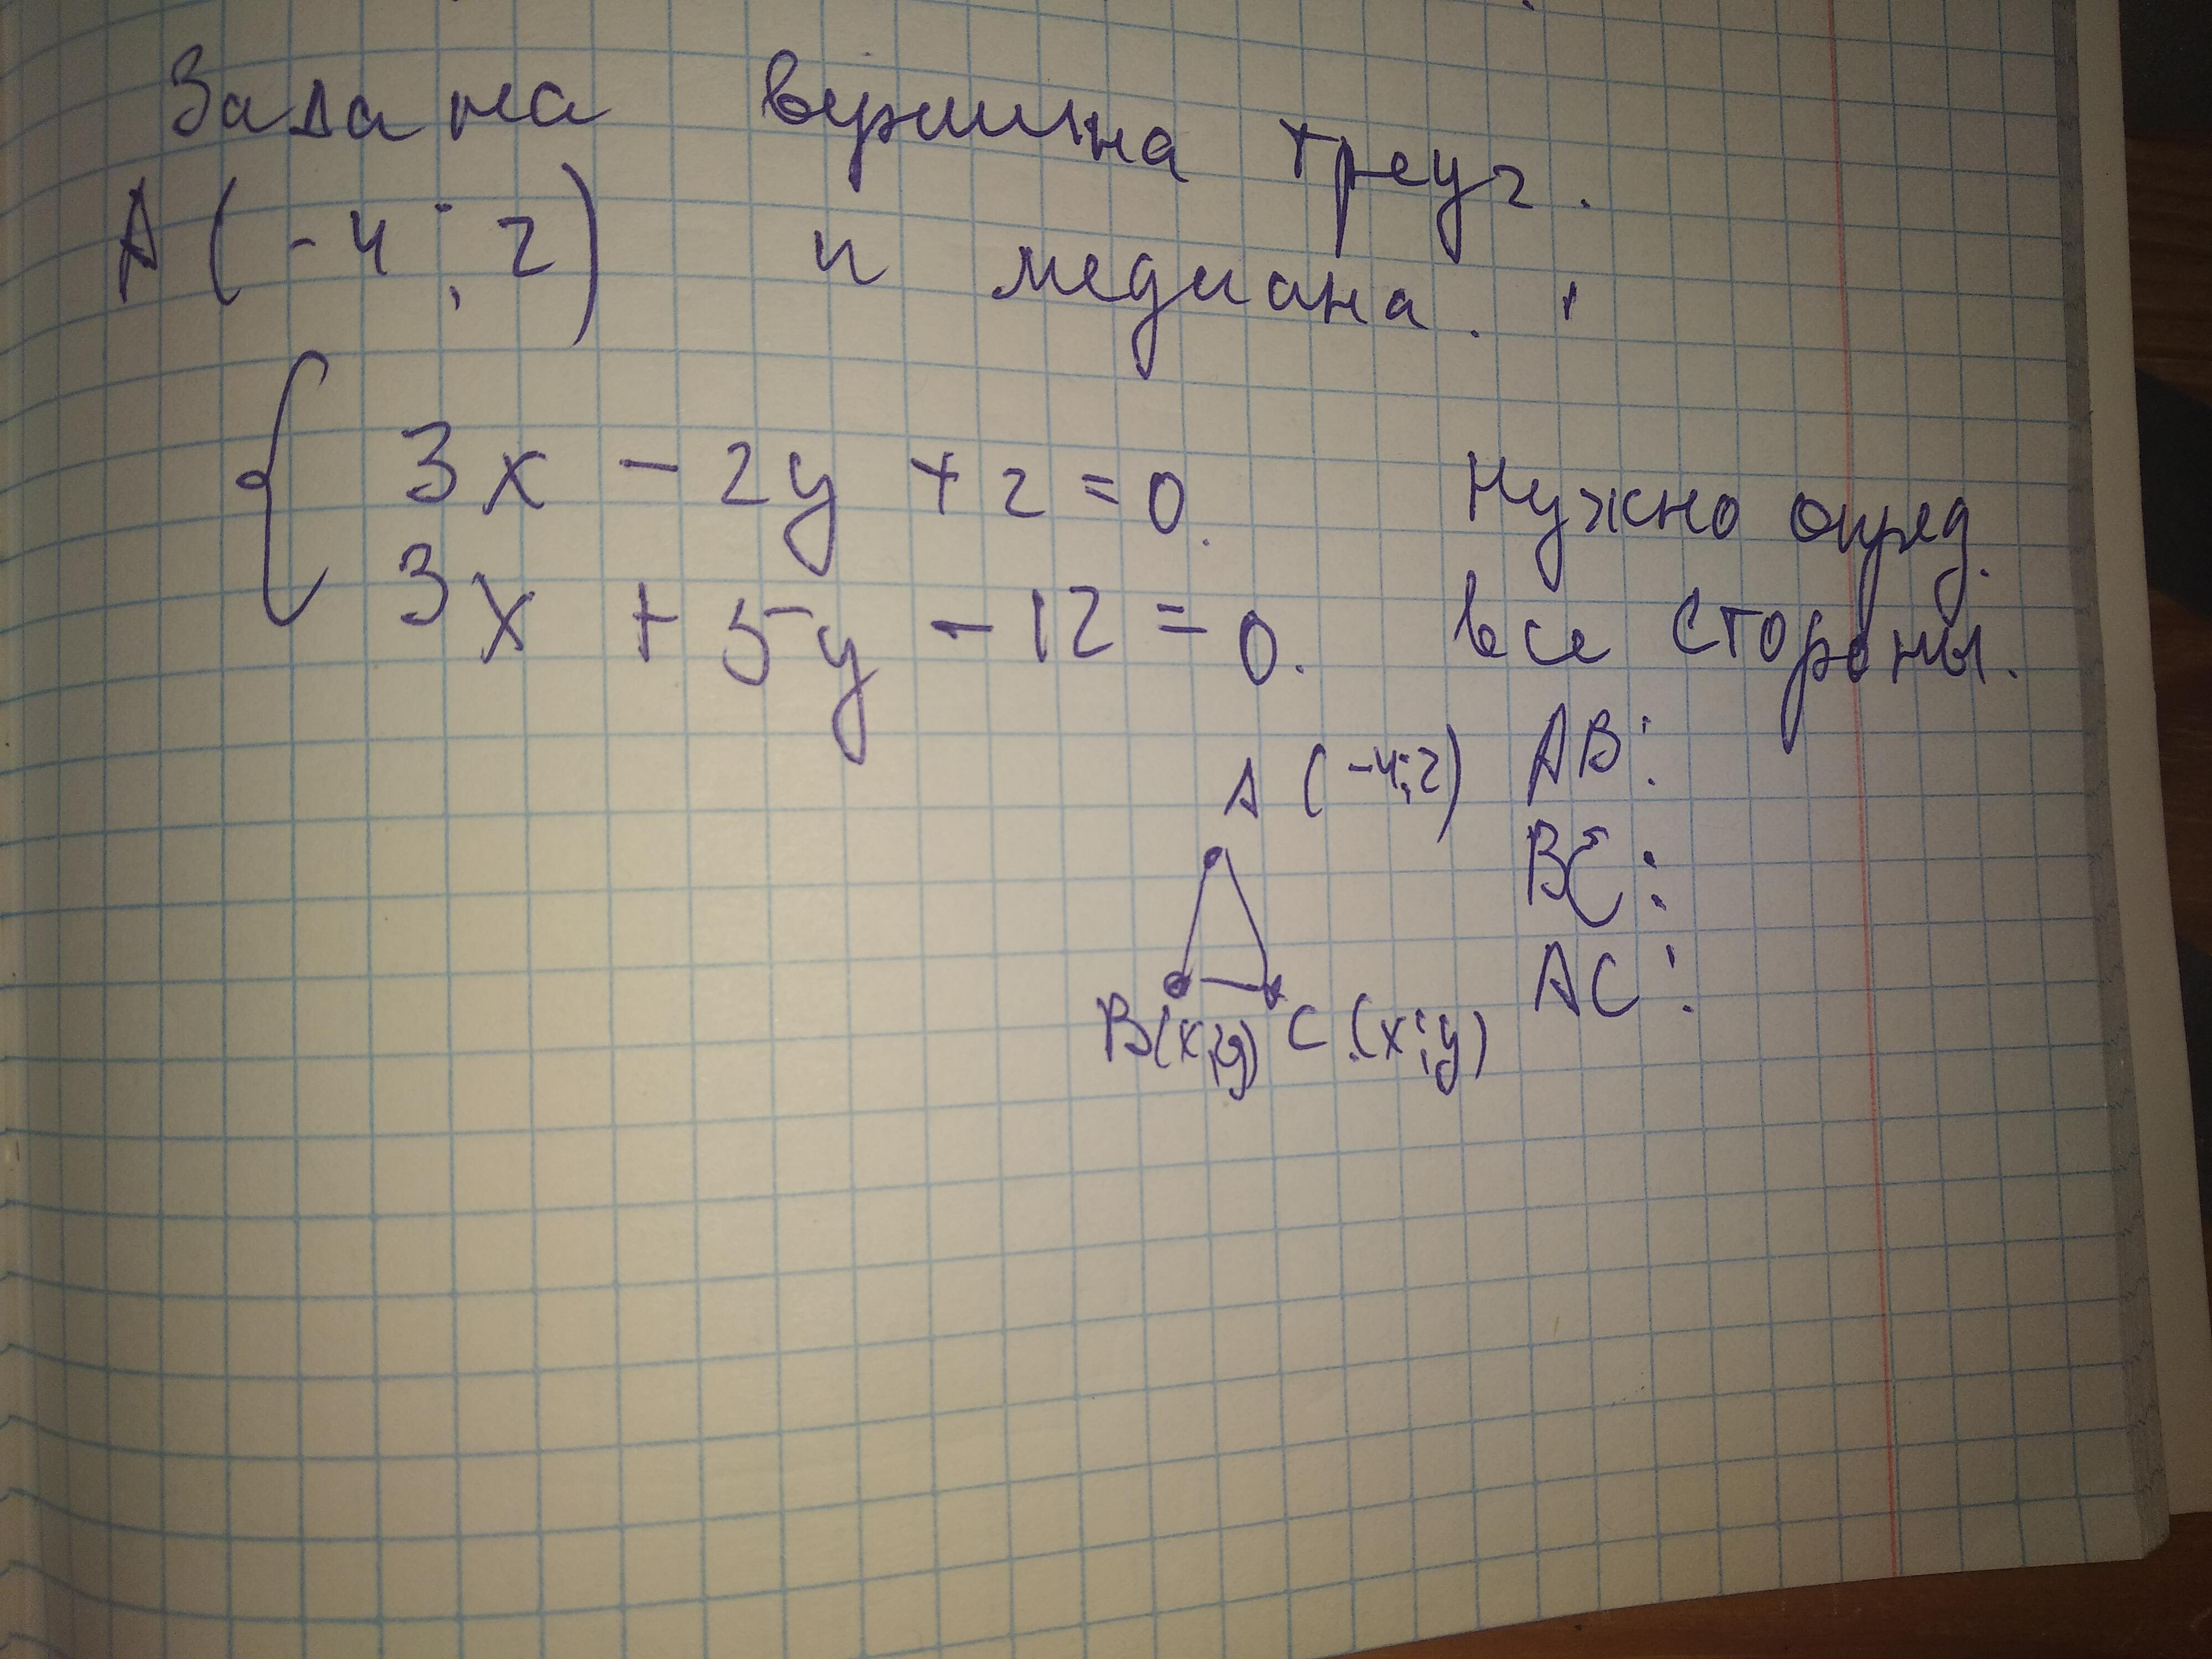 Задана вершина треуг.
A (-4 ; 2) и медиана.
3x - 2y + 2 = 0.
Нужно опред.
3x + 5y - 12 = 0.
все стороны.
A (-4;2) AB:
BC:
AC:
B(x;y) C (x;y)